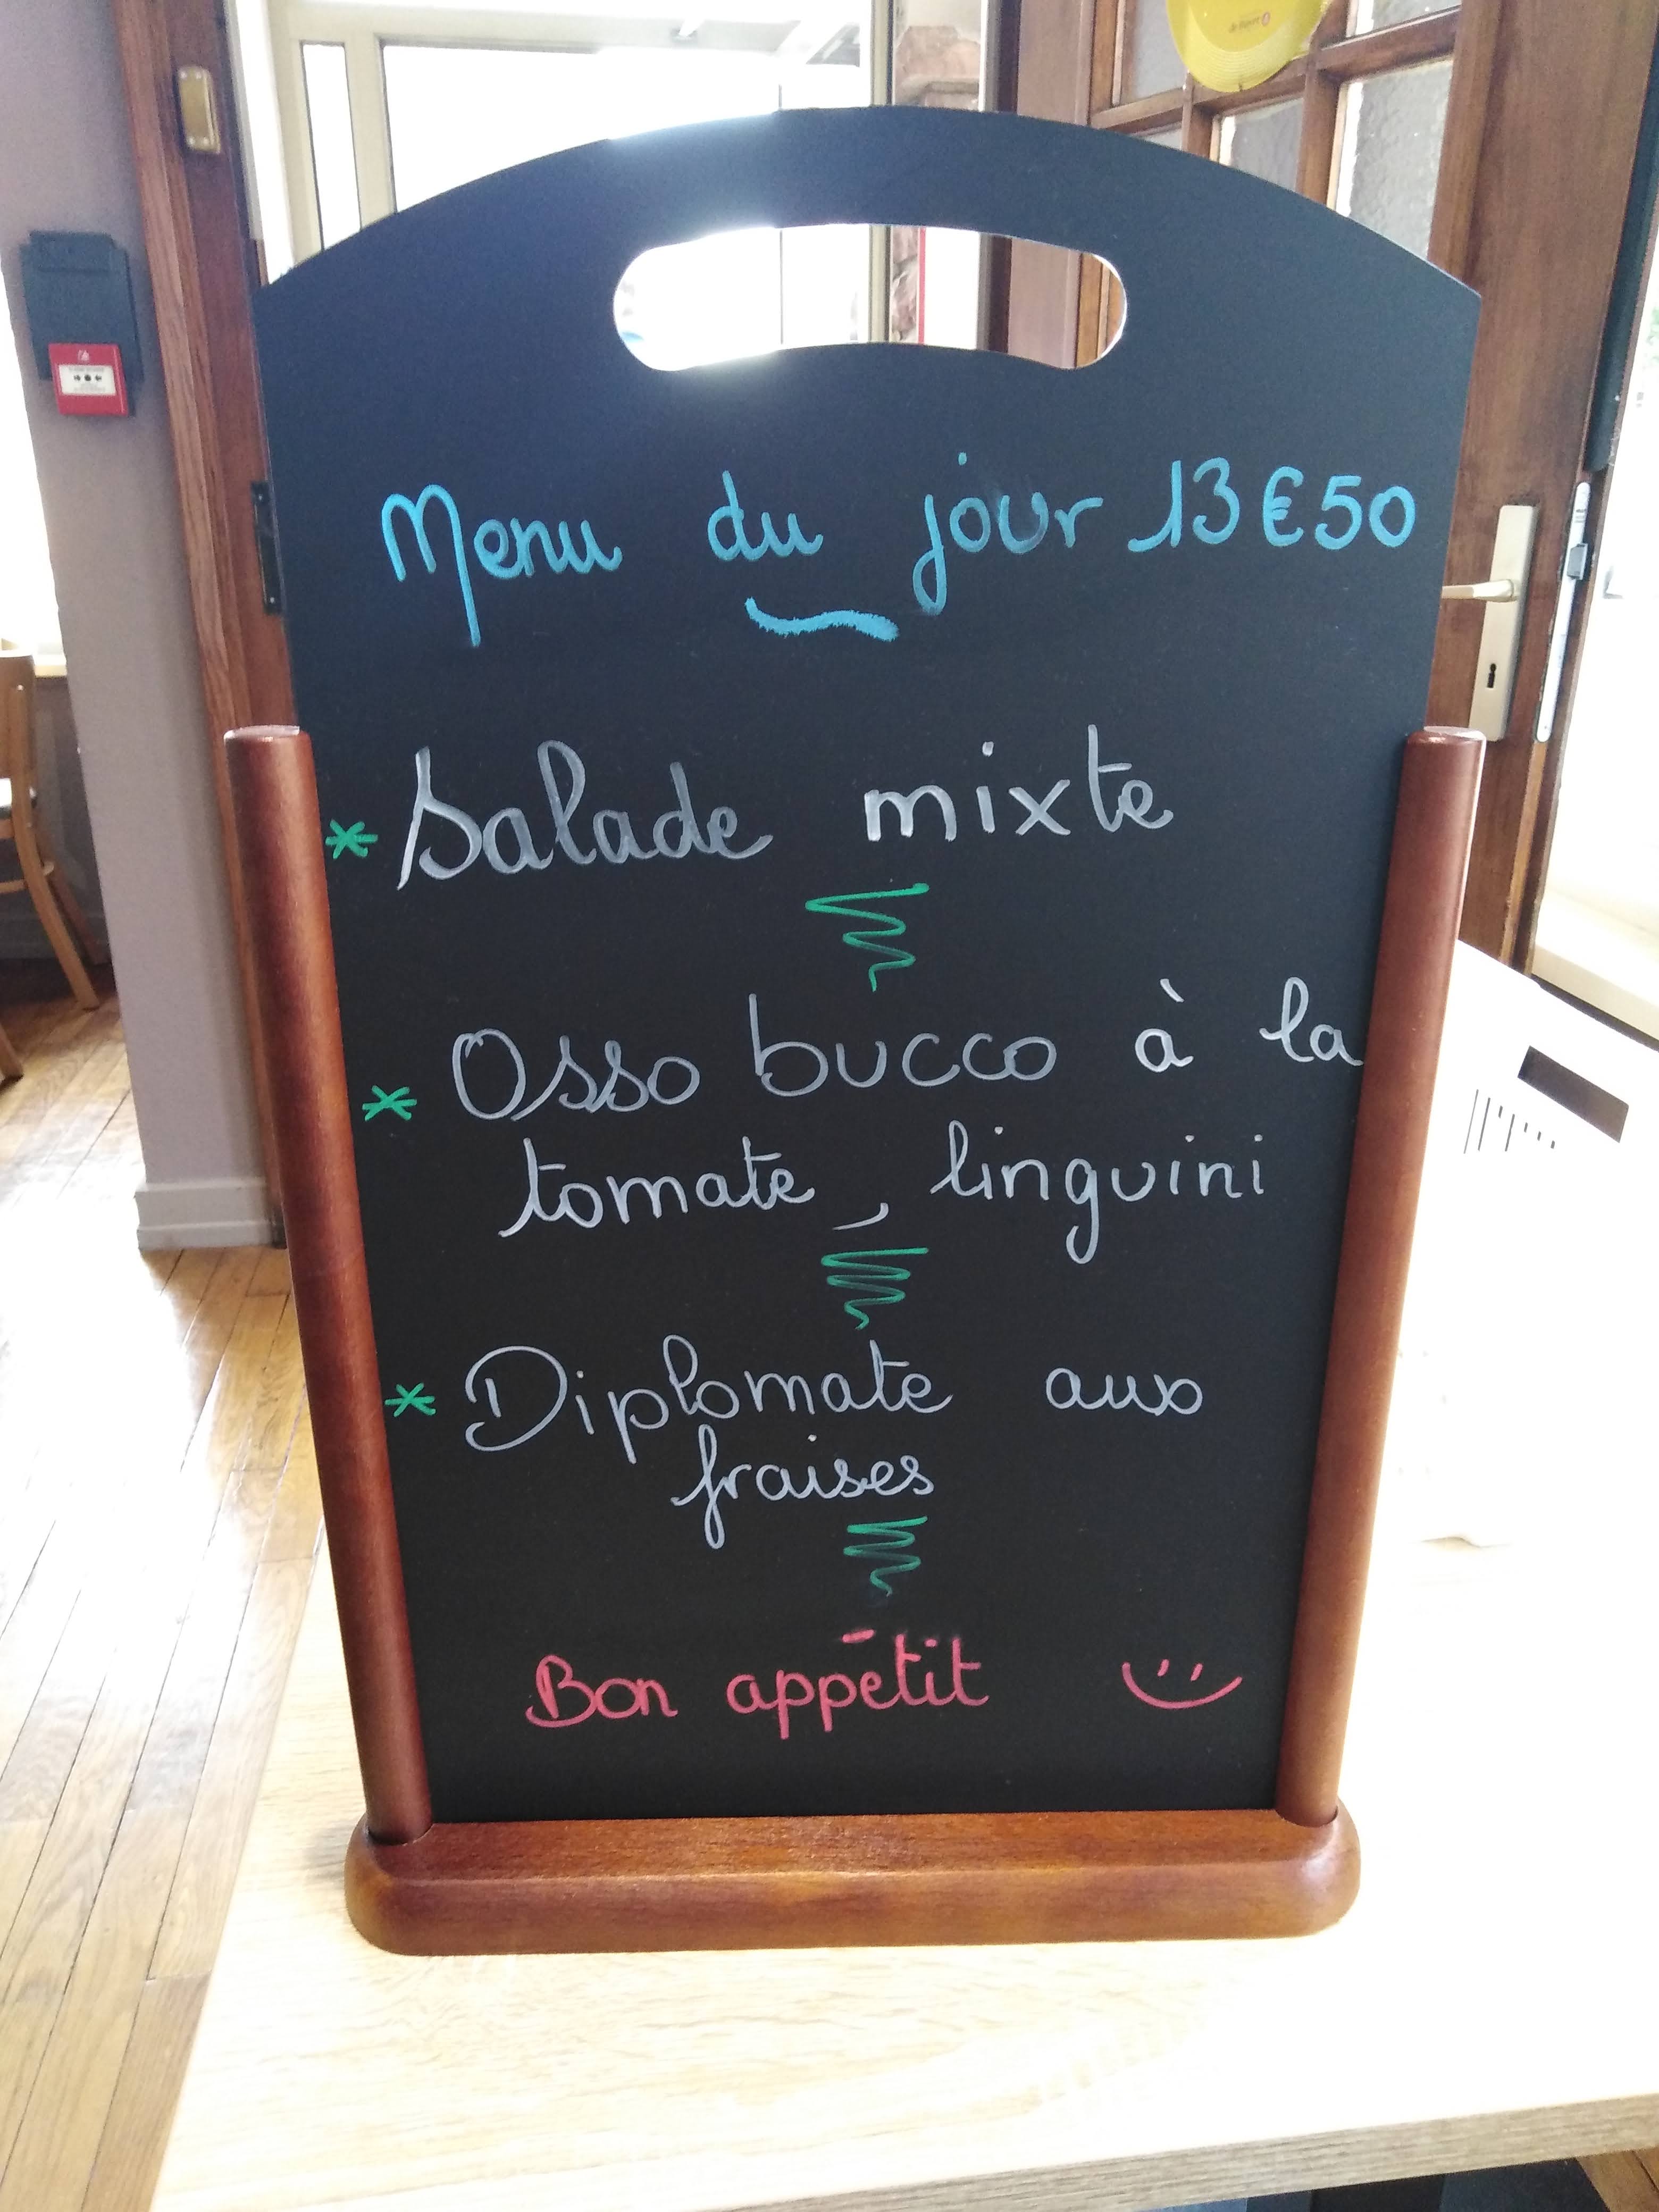 Menu du jour 13€50
* Salade mixte
* Osso bucco à la
tomate, linguini
* Diplomate aux
fraises
Bon appétit